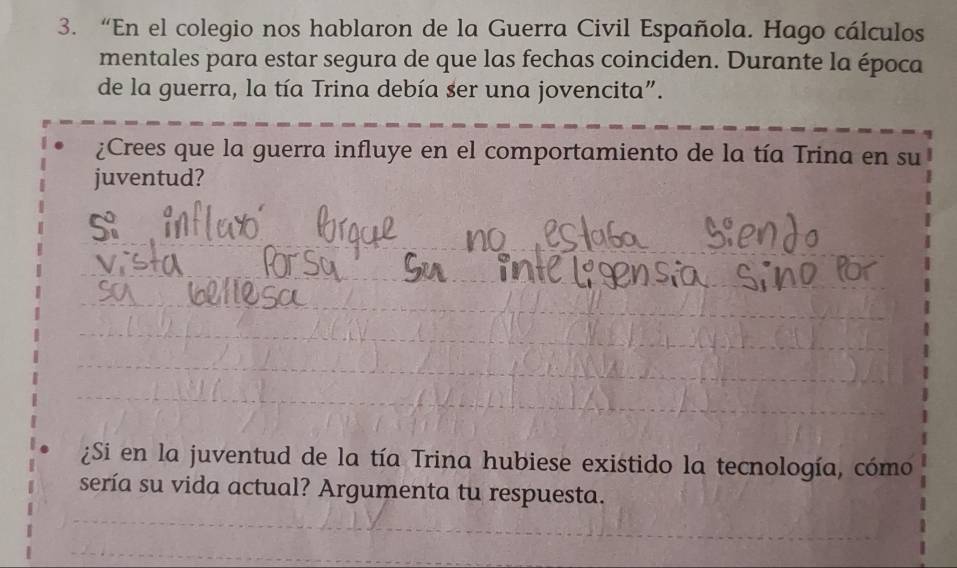 3. "En el colegio nos hablaron de la Guerra Civil Española. Hago cálculos
mentales para estar segura de que las fechas coinciden. Durante la época
de la guerra, la tía Trina debía ser una jovencita".
• ¿Crees que la guerra influye en el comportamiento de la tía Trina en su
juventud?
Si influxo Porque no estaba siendo
vista Porsa su inteligensia sino Por
sa bellesa
• ¿Si en la juventud de la tía Trina hubiese existido la tecnología, cómo
sería su vida actual? Argumenta tu respuesta.